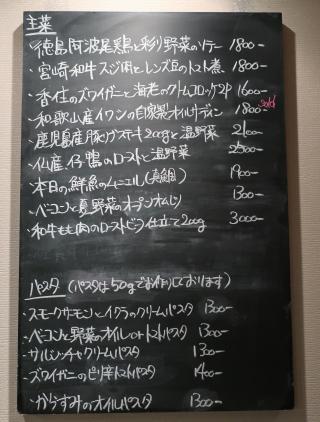 主菜
・徳島阿波尾鶏と彩り野菜のソテー 1800-
・宮崎和牛スジ肉とレンズ豆のトマト煮 1800-
・香住のズワイガニと海老のクリームコロッケ2P 1600-
・和歌山産イワシの自家製オイルサーディン 1800- sold
・鹿児島産豚 ステーキ200gと温野菜 2100-
・仏産、仔鴨のローストと温野菜 2500-
・本日の鮮魚のムニエル(真鯛) 1900-
・ベーコンと夏野菜のオープンオムレツ 1300-
・和牛もも肉のローストビーフ仕立て200g 3000-
パスタ (パスタは50gでお作りしております)
・スモークサーモンとイクラのクリームパスタ 1300-
・ベーコンと野菜のオイルorトマトパスタ 1300-
・サルシッチャクリームパスタ 1300-
・ズワイガニのピリ辛トマトパスタ 1400-
・からすみのオイルパスタ 1300-